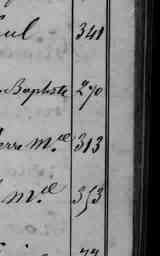 341
Baptiste 270
erre M.el 313
M.el 353